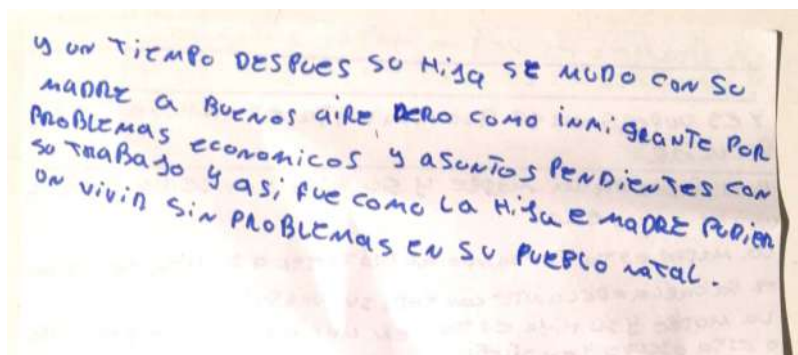 y un tiempo despues su Hija se mudo con su
madre a Buenos aire, pero como inmigrante por
problemas economicos y asuntos pendientes con
su trabajo y asi fue como la Hija e madre pudier
on vivir sin problemas en su pueblo natal.